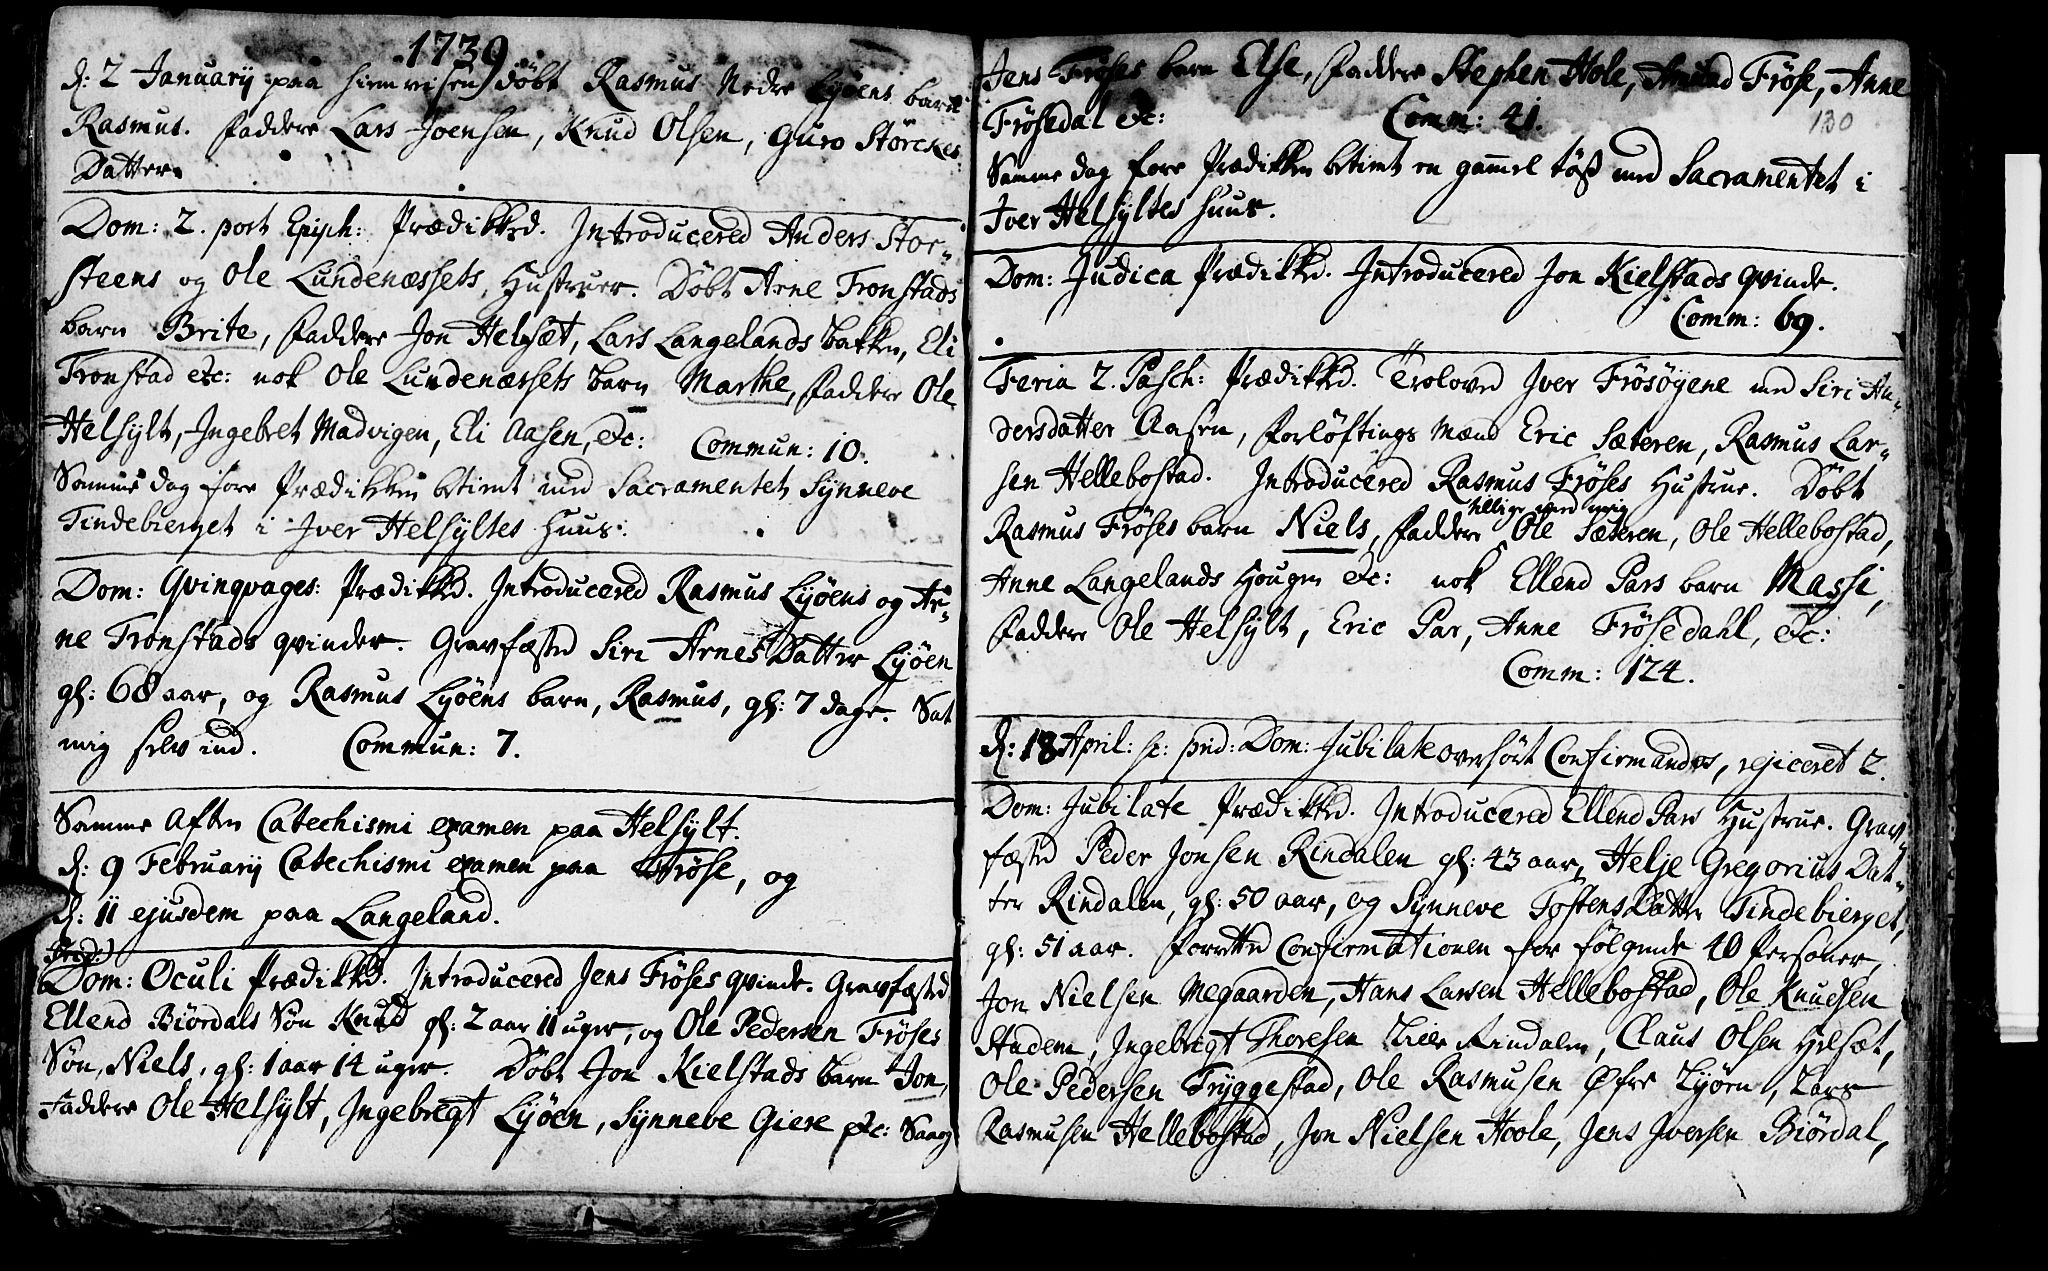 1739
d: 2 Januarij paa hiemreisen döbt Rasmus Nedre Lyöens barn
Rasmus. Faddere Lars Joensen, Knud Olsen, Guro Störckes
Datter.
Dom: 2. post Epiph: Prædikked. Introducered Anders Stor-
steens og Ole Lundenæssets Hustruer. Döbt Arne Tronstads
barn Brite, Faddere Jon Helsæt, Lars Langelands bakken, Eli
Tronstad etc: nok Ole Lundenæssets barn Marthe, Faddere Ole
Helsylt, Ingebret Madvigen, Eli Aasen, etc: Commun: 10.
Samme dag före Prædikken betient med Sacramentet Synneve
Tindebierget i Iver Helsyltes huus:
Dom: Qvinqvages: Prædikked. Introducered Rasmus Lyöens og Ar-
ne Tronstads qvinder. Gravfæsted Siri Arnes Datter Lyöen
gl: 68 aar, og Rasmus Lyöens barn, Rasmus, gl: 7 dage. Sat
mig selv ind. Commun: 7.
Samme Aften Catechismi examen paa Helsylt.
d: 9 Februarij Catechismi examen paa Fröse, og
d: 11 ejusdem paa Langeland.
Dom: Oculi Prædikked. Introducered Jens Fröses qvinde. Gravfæsted
Ellend Biördals Sön Knud gl: 2 aar 11 uger, og Ole Pedersen Fröses
Sön, Niels, gl: 1 aar 14 uger. Döbt Jon Kielstads barn Jon,
Faddere Ole Helsylt, Ingebregt Lyöen, Synneve Giere etc: Saa og
Jens Fröses barn Else, Faddere Stephen Hole, Amund Fröse, Anne
Frösedal etc: Comm: 41.
130
Samme dag före Prædikken betient en gammel töß med Sacramentet i
Iver Helsyltes huus.
Dom: Judica Prædikked. Introducered Jon Kielstads qvinde.
Comm: 69.
Feria 2. Pasch: Prædikked. Trolovd Iver Frösöyene med Siri An-
dersdatter Aasen, Forlöftings Mænd Eric Sæteren, Rasmus Lar-
sen Hellebostad. Introducered Rasmus Fröses Hustrue. Döbt
tillige med mig
Rasmus Fröses barn Niels, Faddere Ole Sæteren, Ole Hellebostad,
Anne Langelands Hougen etc: nok Ellend Pars barn Massi,
Faddere Ole Helsylt, Eric Par, Anne Frösedahl, etc:
Comm: 124.
d: 18 April: prid: Dom: Jubilate overhört Confirmandos, rejiceret 2.
Dom: Jubilate Prædikked. Introducered Ellend Pars Hustrue. Grav-
fæsted Peder Jonsen Rindalen gl: 43 aar, Helje Gregorius Dat-
ter Rindalen, gl: 50 aar, og Synneve Tostens Datter Tindebierget,
gl: 51 aar. Forrettet Confirmationen for fölgende 40 Personer,
Jon Nielsen Megaarden, Hans Larsen Hellebostad, Ole Knudsen
Stadem, Ingebrigt Thoresen Lille Rindalen, Claus Olsen Helsæt,
Ole Pedersen Tryggestad, Ole Rasmusen Øfre Lyöen, Lars
Rasmusen Hellebostad, Jon Nielsen Hoole, Jens Iversen Biördal,